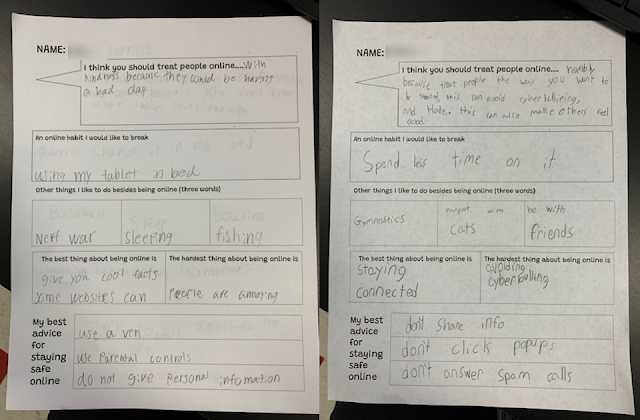 NAME:
I think you should treat people online.... With
kindness because they could be having
a bad day.
An online habit I would like to break
using my tablet in bed
Other things I like to do besides being online (three words)
Nerf war
sleeping
fishing
The best thing about being online is
give you cool facts
some websites can
The hardest thing about being online is
People are annoying
My best
advice
for
staying
safe
online
use a ven
use Parental controls
do not give personal infomation
NAME:
I think you should treat people online....
because treat people the way you want to
be treated, this can avoid cyberbullying,
and Hate. this can also make others feel
good
An online habit I would like to break
Spend less time on it
Other things I like to do besides being online (three words)
Gymnastics
hangout with
cats
be with
friends
The best thing about being online is
staying
connected
The hardest thing about being online is
avoiding
cyberbulling
My best
advice
for
staying
safe
online
don't share info
don't click popups
don't answer spam calls